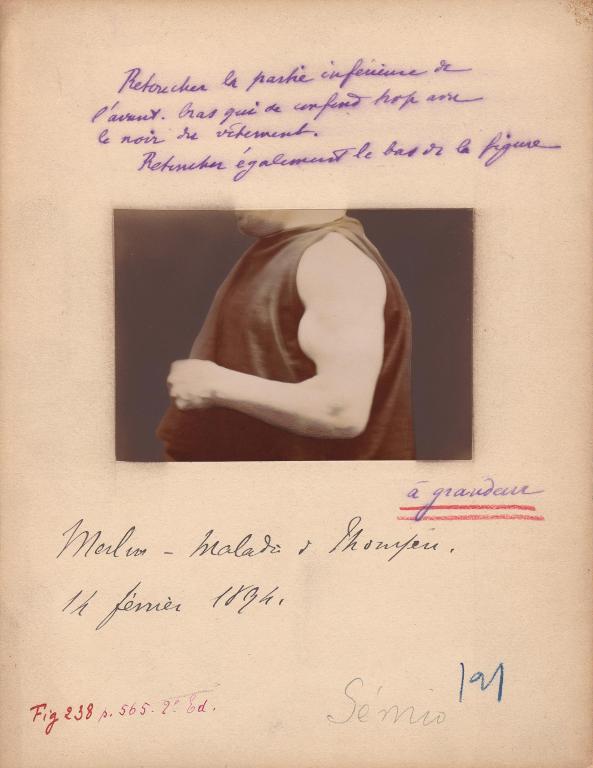 Retoucher la partie inférieure de
l'avant-bras qui se confond trop avec
le noir du vêtement.
Retoucher également le bas de la figure
à grandeur
Merlin - Maladie d Thomsen.
14 février 1894.
191
Sémio
Fig 238 p. 565. 2e Ed.